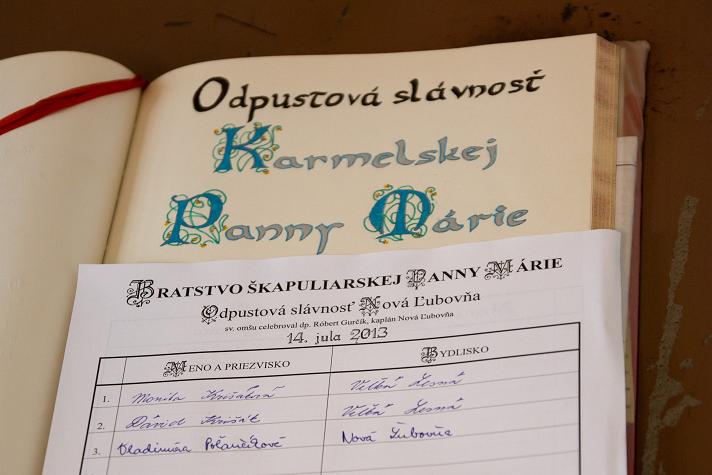 Odpustová slávnosť
Karmelskej
Panny Márie
BRATSTVO ŠKAPULIARSKEJ PANNY MÁRIE
Odpustová slávnosť Nová Ľubovňa
sv. omšu celebroval dp. Róbert Gurčík, kaplán Nová Ľubovňa
14. jula 2013
MENO A PRIEZVISKO BYDLISKO
1. Monika Veľká Lesná
2. Dávid Krišák Veľká Lesná
3. Vladimíra Nová Ľubovňa